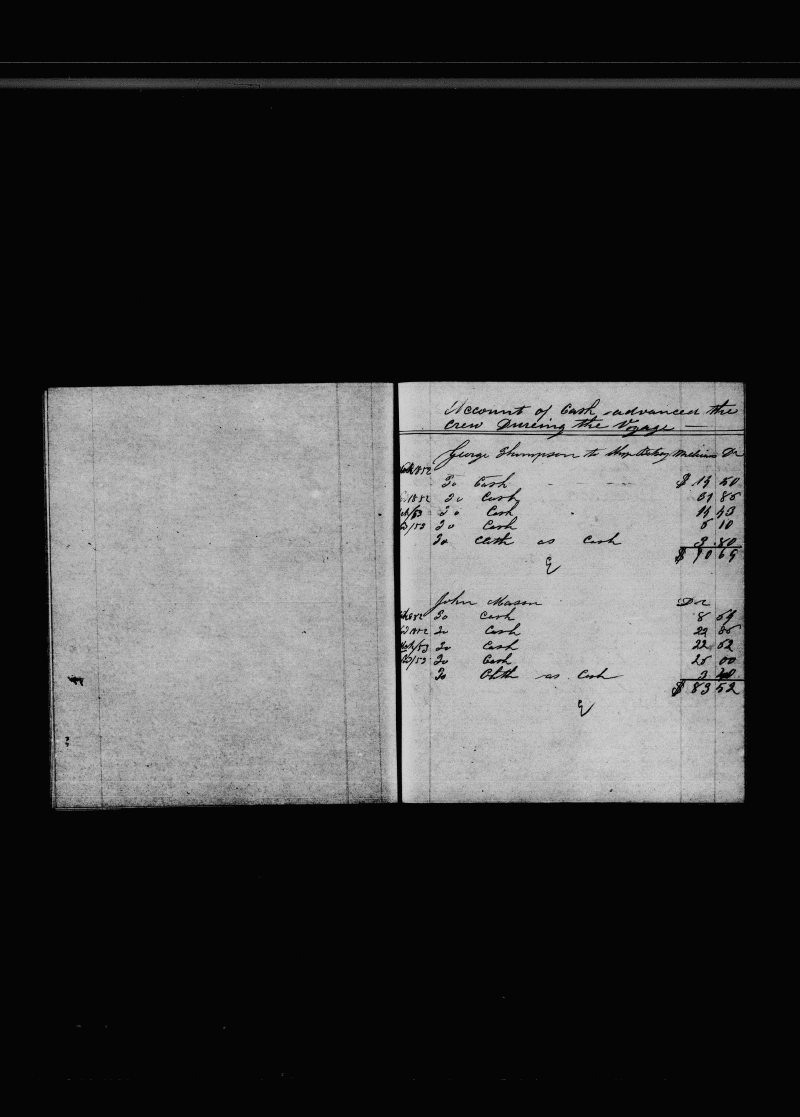 Account of Cash advanced the
crew Dureing the Voyage —
George Thompson to Ship Dr
1852
To Cash $ 14 50
1852 To Cash 31 85
/53 To Cash
/53 To Cash 5 10
To Cloth as Cash 3.80
$ 70 69
John Mason Dr
1852 To Cash 8
1852 To Cash 22 85
/53 To Cash 22 52
/53 To Cash 25 00
To Cloth as Cash
$ 83 52